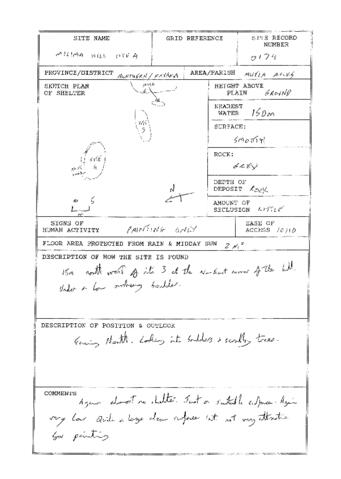 SITE NAME GRID REFERENCE SITE RECORD NUMBER
HILL SITE 4 0174
PROVINCE/DISTRICT NORTHERN/ AREA/PARISH
SKETCH PLAN OF SHELTER
SITE 3
SITE 4
0 5
m
N
HEIGHT ABOVE PLAIN GROUND
NEAREST WATER 150m
SURFACE:
SMOOTH
ROCK:
GREY
DEPTH OF DEPOSIT ROCK
AMOUNT OF SECLUSION LITTLE
SIGNS OF HUMAN ACTIVITY PAINTING ONLY EASE OF ACCESS 10/10
FLOOR AREA PROTECTED FROM RAIN & MIDDAY SUN 2 m²
DESCRIPTION OF HOW THE SITE IS FOUND
15m north west of site 3 at the corner of the hill.
Under a low boulder.
DESCRIPTION OF POSITION & OUTLOOK
Facing North. Looking into boulders & scrubby trees.
COMMENTS
Again almost no shelter. Just a suitable surface. Again
very low. Quite a large clean surface but not very attractive
for painting